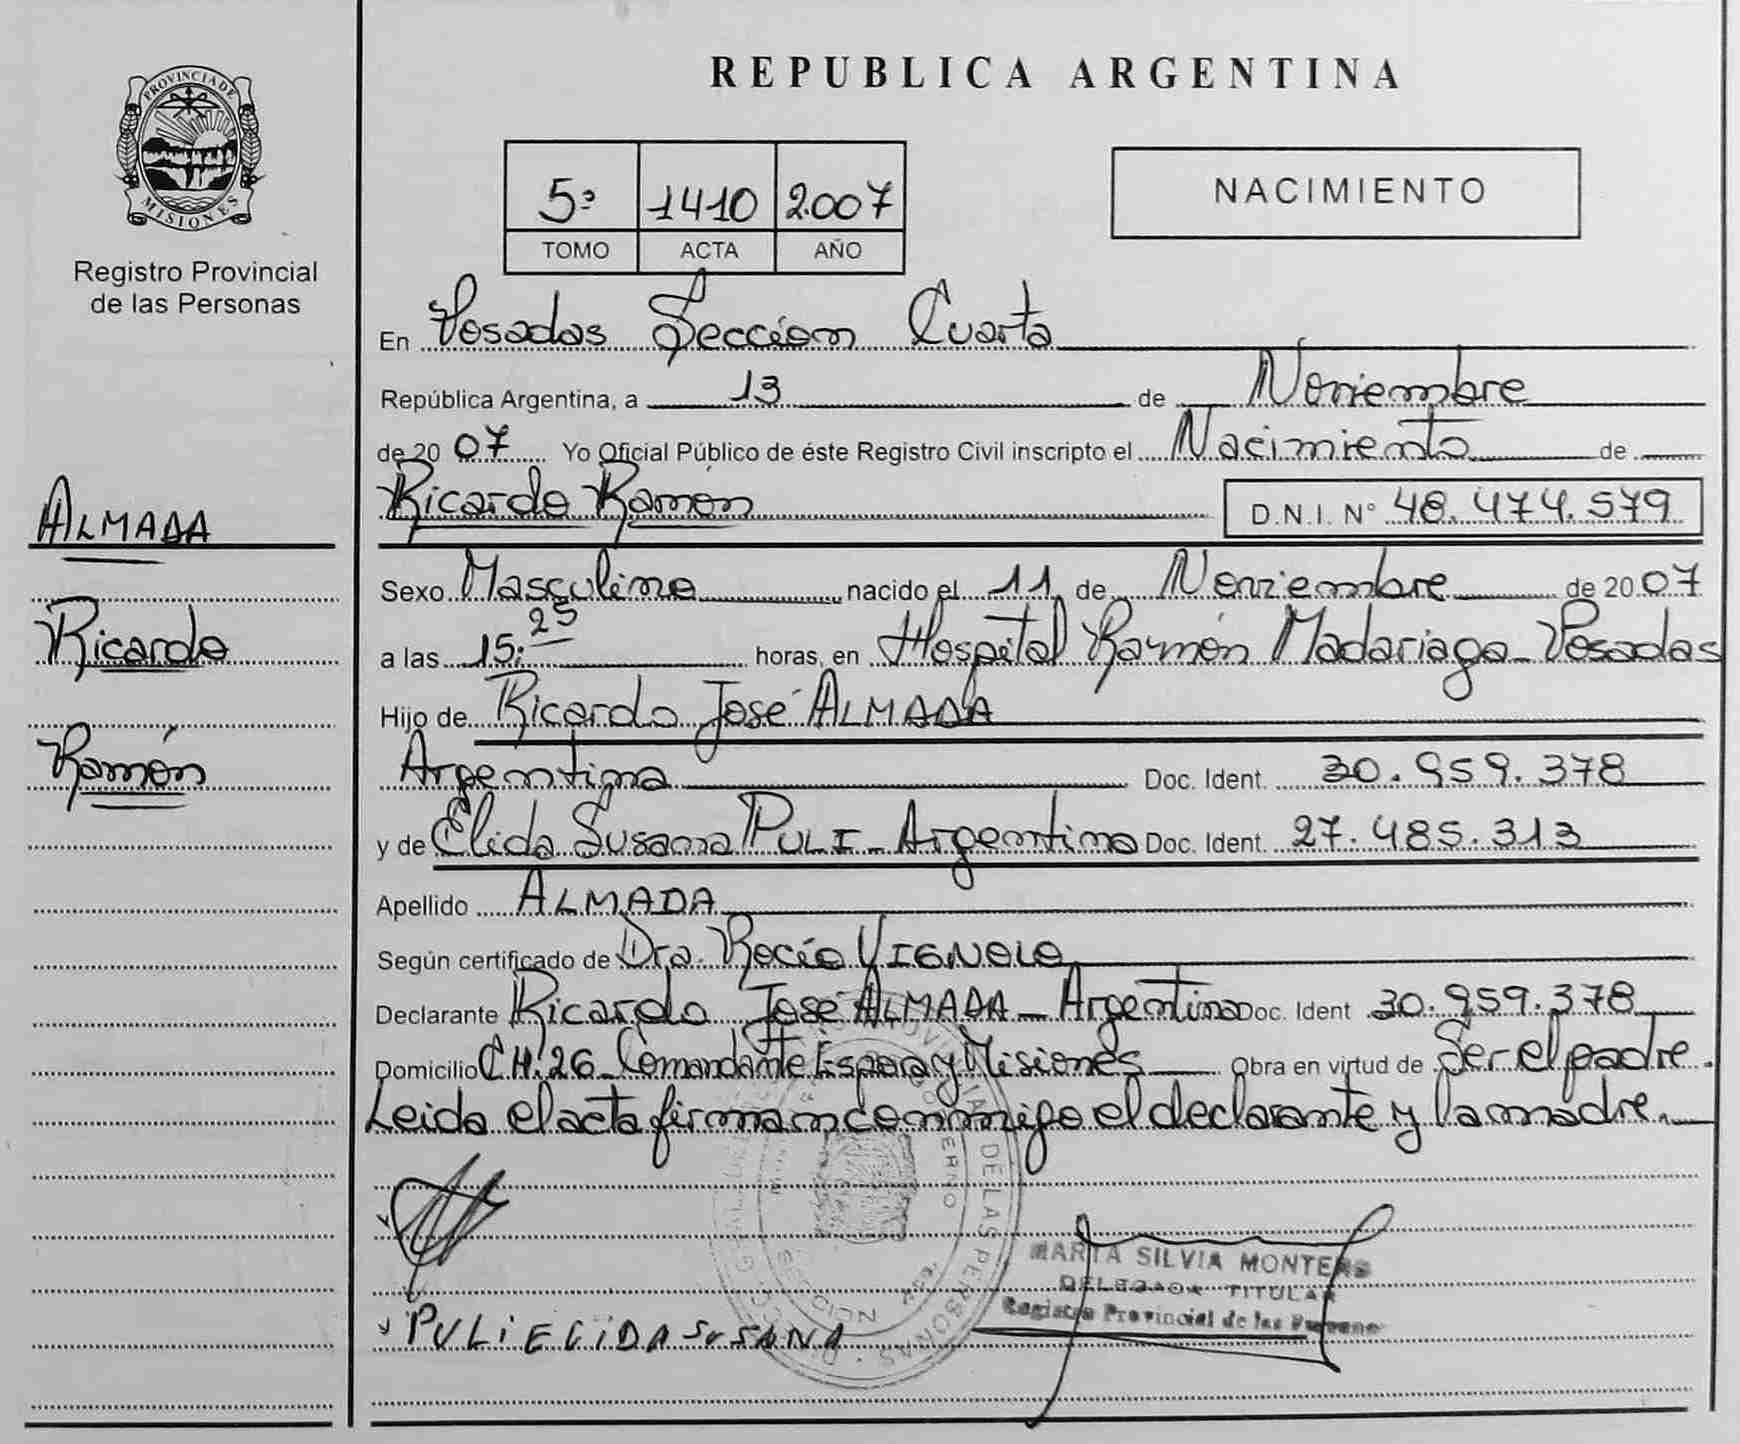 PROVINCIA DE
MISIONES
Registro Provincial
de las Personas
ALMADA
Ricardo
Ramón
REPUBLICA ARGENTINA
5º 1410 2.007
TOMO ACTA AÑO
NACIMIENTO
En Posadas Sección Cuarta
República Argentina, a 13 de Noviembre
de 20 07 Yo Oficial Público de éste Registro Civil inscripto el Nacimiento de
Ricardo Ramón D.N.I. N° 48.474.579
Sexo Masculino nacido el 11 de Noviembre de 20 07
a las 15:25 horas, en Hospital Ramón Madariaga - Posadas
Hijo de Ricardo José ALMADA
Argentina Doc. Ident. 30.959.378
y de Elida Susana PULI - Argentina Doc. Ident. 27.485.313
Apellido ALMADA
Según certificado de Dra. Rocío VIGNOLO
Declarante Ricardo José ALMADA - Argentina Doc. Ident 30.959.378
Domicilio CH. 26 Comandante Espora y Misiones Obra en virtud de Ser el padre.
Leida el acta firman conmigo el declarante y la madre.
DE LAS PERSONAS
SECCION
MARTA SILVIA MONTERO
DELEGADA TITULAR
Registro Provincial de las Personas
PULI ELIDA SUSANA